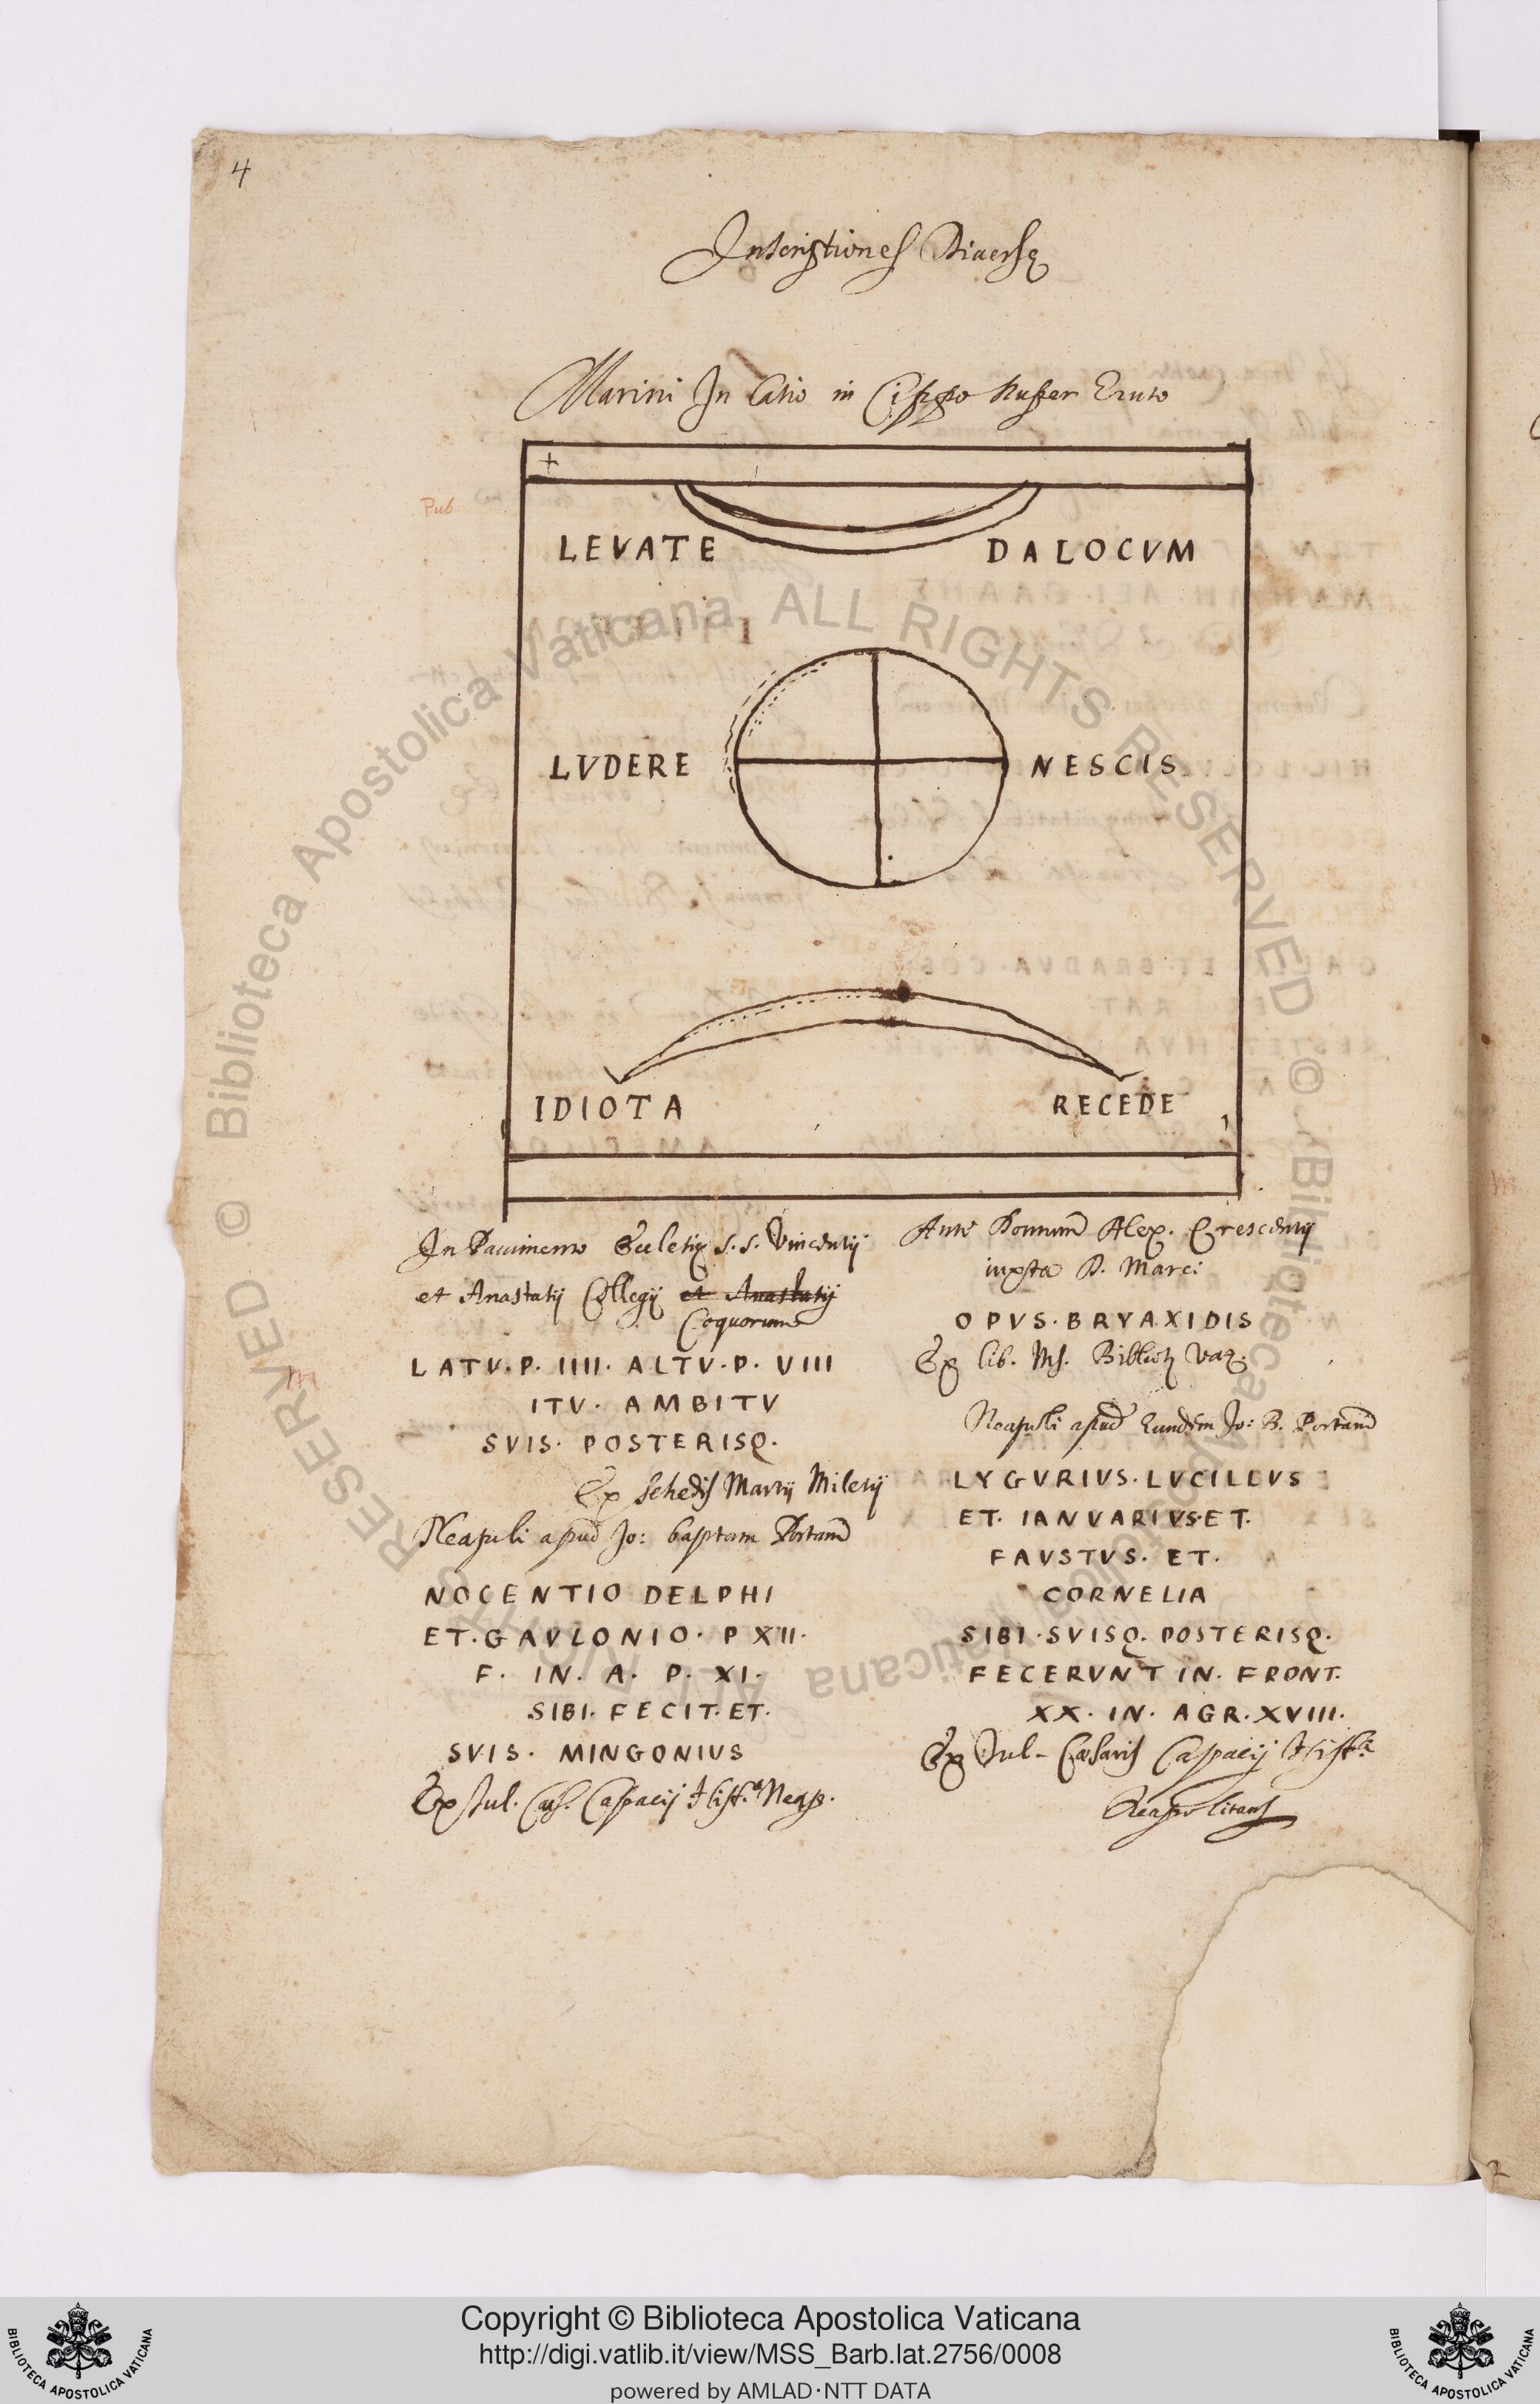 4
Inscriptiones Diuersę
Marini In Latio in Cippo nuper Eruto
Pub
LEVATE DALOCVM
LVDERE NESCIS
IDIOTA RECEDE
In Pauimento Ecclesię S.S. Vincentij
et Anastatij Collegij et Anastatij
Coquorum
LATV.P. IIII. ALTV.P. VIII
ITV. AMBITV
SVIS. POSTERISQ.
Ex schedis Martij Milesij
Neapuli apud Jo: baptam Portam
NOCENTIO DELPHI
ET.GAVLONIO. P XII.
F. IN. A. P. XI.
SIBI. FECIT. ET.
SVIS. MINGONIUS
Ex Jul. Caes. Capacij Hist.a Neap.
Ante Domum Alex. Crescentij
iuxta D. Marci
OPVS. BRYAXIDIS
Ex lib. Ms. Bibliot. Vat.
Neapoli apud Eundem Jo: B. Portam
LYGVRIVS. LVCILLVS
ET. IANVARIVS. ET.
FAVSTVS. ET.
CORNELIA
SIBI. SVISQ. POSTERISQ.
FECERVNT IN. FRONT.
XX. IN. AGR. XVIII.
Ex Jul. Caesaris Capacij Hist.a
Neapolitana
m
Biblioteca Apostolica Vaticana ALL RIGHTS RESERVED ©
Copyright © Biblioteca Apostolica Vaticana
http://digi.vatlib.it/view/MSS_Barb.lat.2756/0008
powered by AMLAD·NTT DATA
BIBLIOTECA APOSTOLICA VATICANA
BIBLIOTECA APOSTOLICA VATICANA